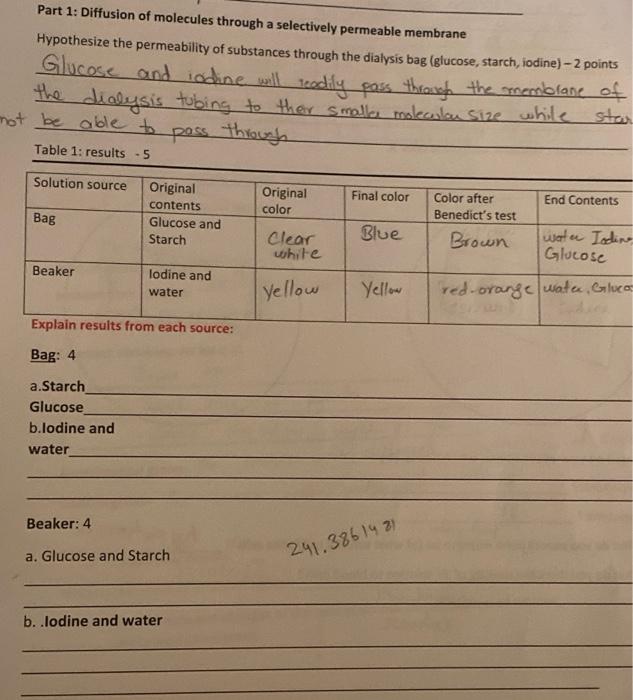 Part 1: Diffusion of molecules through a selectively permeable membrane
Hypothesize the permeability of substances through the dialysis bag (glucose, starch, iodine) – 2 points
Glucose and iodine will readily pass through the membrane of
the dialysis tubing to their smaller molecular size while star
not be able to pass through
Table 1: results - 5
Solution source Original contents Original color Final color Color after Benedict's test End Contents
Bag Glucose and Starch Clear white Blue Brown water Iodine Glucose
Beaker Iodine and water Yellow Yellow red-orange water, Gluco
Explain results from each source:
Bag: 4
a.Starch
Glucose
b.Iodine and
water
Beaker: 4
241.3861421
a. Glucose and Starch
b. .Iodine and water